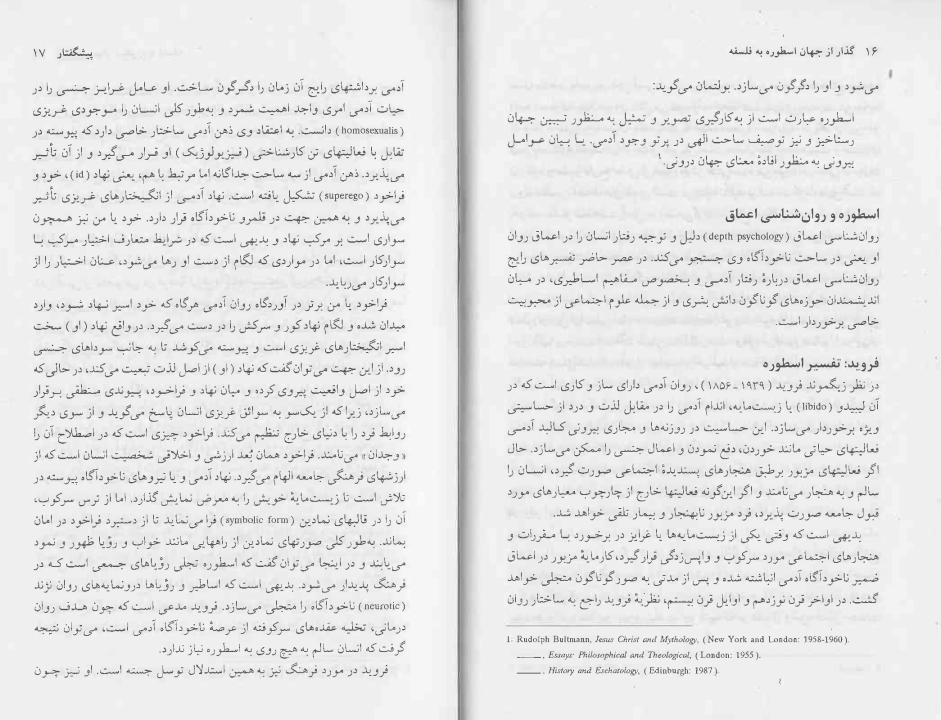 ۱۶ گذار از جهان اسطوره به فلسفه
می‌شود و او را دگرگون می‌سازد. بولتمان می‌گوید:
اسطوره عبارت است از به‌کارگیری تصویر و تمثیل به منظور تبیین جهان
رستاخیز و نیز توصیف ساحت الهی در پرتو وجود آدمی. یا بیان عوامل
بیرونی به منظور افادهٔ معنای جهان درونی.۱
اسطوره و روان‌شناسی اعماق
روان‌شناسی اعماق (depth psychology) دلیل و توجیه رفتار انسان را در اعماق روان
او یعنی در ساحت ناخودآگاه وی جستجو می‌کند. در عصر حاضر تفسیرهای رایج
روان‌شناسی اعماق دربارهٔ رفتار آدمی و بخصوص مفاهیم اساطیری، در میان
اندیشمندان حوزه‌های گوناگون دانش بشری و از جمله علوم اجتماعی از محبوبیت
خاصی برخوردار است.
فروید: تفسیر اسطوره
در نظر زیگموند فروید (۱۹۳۹ ـ ۱۸۵۶)، روان آدمی دارای ساز و کاری است که در
آن لیبیدو (libido) یا زیست‌مایه، اندام آدمی را در مقابل لذت و درد از حساسیتی
ویژه برخوردار می‌سازد. این حساسیت در روزنه‌ها و مجاری بیرونی کالبد آدمی
فعالیتهای حیاتی مانند خوردن، دفع نمودن و اعمال جنسی را ممکن می‌سازد. حال
اگر فعالیتهای مزبور برطبق هنجارهای پسندیدهٔ اجتماعی صورت گیرد، انسان را
سالم و به هنجار می‌نامند و اگر این‌گونه فعالیتها خارج از چارچوب معیارهای مورد
قبول جامعه صورت پذیرد، فرد مزبور نابهنجار و بیمار تلقی خواهد شد.
بدیهی است که وقتی یکی از زیست‌مایه‌ها یا غرایز در برخورد با مقررات و
هنجارهای اجتماعی مورد سرکوب و واپس‌زدگی قرار گیرد، کارمایهٔ مزبور در اعماق
ضمیر ناخودآگاه آدمی انباشته شده و پس از مدتی به صور گوناگون متجلی خواهد
گشت. در اواخر قرن نوزدهم و اوایل قرن بیستم، نظریهٔ فروید راجع به ساختار روان
1. Rudolph Bultmann, Jesus Christ and Mythology, (New York and London: 1958-1960).
_____, Essays: Philosophical and Theological, (London: 1955).
_____, History and Eschatology, (Edinburgh: 1987).
پیشگفتار ۱۷
آدمی برداشتهای رایج آن زمان را دگرگون ساخت. او عامل غرایز جنسی را در
حیات آدمی امری واجد اهمیت شمرد و به‌طور کلی انسان را موجودی غریزی
(homosexualis) دانست. به اعتقاد وی ذهن آدمی ساختار خاصی دارد که پیوسته در
تقابل با فعالیتهای تن کارشناختی (فیزیولوژیک) او قرار می‌گیرد و از آن تأثیر
می‌پذیرد. ذهن آدمی از سه ساحت جداگانه اما مرتبط با هم، یعنی نهاد (id)، خود و
فراخود (superego) تشکیل یافته است. نهاد آدمی از انگیختارهای غریزی تأثیر
می‌پذیرد و به همین جهت در قلمرو ناخودآگاه قرار دارد. خود یا من نیز همچون
سواری است بر مرکب نهاد و بدیهی است که در شرایط متعارف اختیار مرکب با
سوارکار است، اما در مواردی که لگام از دست او رها می‌شود، عنان اختیار را از
سوارکار می‌رباید.
فراخود یا من برتر در آوردگاه روان آدمی هرگاه که خود اسیر نهاد شود، وارد
میدان شده و لگام نهاد کور و سرکش را در دست می‌گیرد. در واقع نهاد (او) سخت
اسیر انگیختارهای غریزی است و پیوسته می‌کوشد تا به جانب سوداهای جنسی
رود. از این جهت می‌توان گفت که نهاد (او) از اصل لذت تبعیت می‌کند، در حالی که
خود از اصل واقعیت پیروی کرده و میان نهاد و فراخود، پیوندی منطقی برقرار
می‌سازد، زیرا که از یک‌سو به سوائق غریزی انسان پاسخ می‌گوید و از سوی دیگر
روابط فرد را با دنیای خارج تنظیم می‌کند. فراخود چیزی است که در اصطلاح آن را
«وجدان» می‌نامند. فراخود همان بُعد ارزشی و اخلاقی شخصیت انسان است که از
ارزشهای فرهنگی جامعه الهام می‌گیرد. نهاد آدمی و یا نیروهای ناخودآگاه پیوسته در
تلاش است تا زیست‌مایهٔ خویش را به معرض نمایش گذارد. اما از ترس سرکوب،
آن را در قالبهای نمادین (symbolic form) فرا می‌نماید تا از دستبرد فراخود در امان
بماند. به‌طور کلی صورتهای نمادین از راههایی مانند خواب و رؤیا ظهور و نمود
می‌یابند و در اینجا می‌توان گفت که اسطوره تجلی رؤیاهای جمعی است که در
فرهنگ پدیدار می‌شود. بدیهی است که اساطیر و رؤیاها درونمایه‌های روان نژند
(neurotic) ناخودآگاه را متجلی می‌سازد. فروید مدعی است که چون هدف روان
درمانی، تخلیه عقده‌های سرکوفته از عرصهٔ ناخودآگاه آدمی است، می‌توان نتیجه
گرفت که انسان سالم به هیچ روی به اسطوره نیاز ندارد.
فروید در مورد فرهنگ نیز به همین استدلال توسل جسته است. او نیز چون